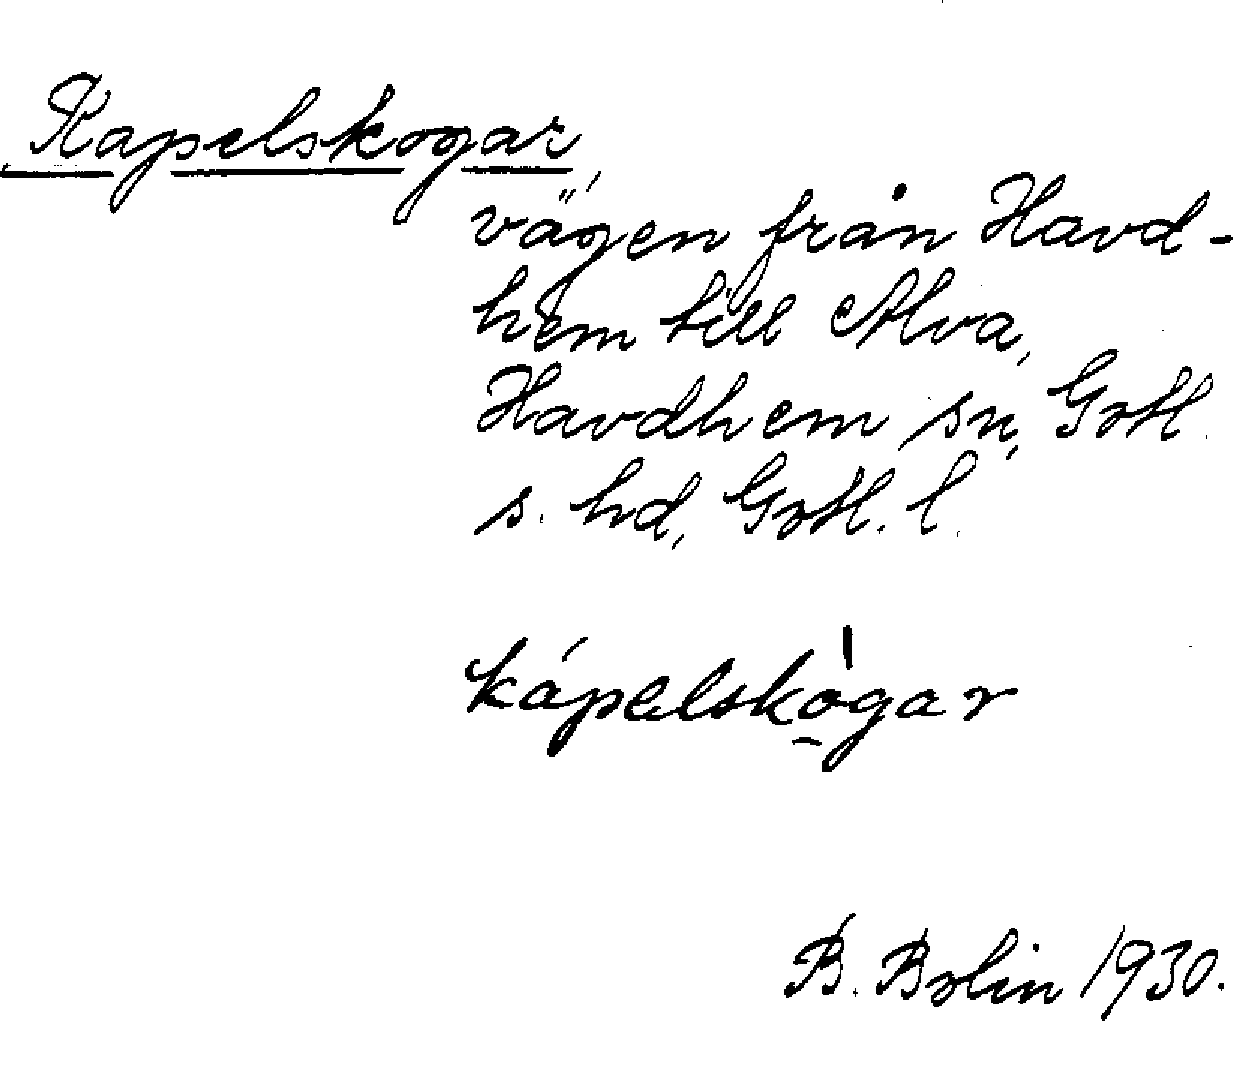 Kapelskogar,
vägen från Havd-
hem till Alva,
Havdhem sn, Gotl.
s. hd, Gotl. l.
kápelskò̱gar
B. Bolin 1930.